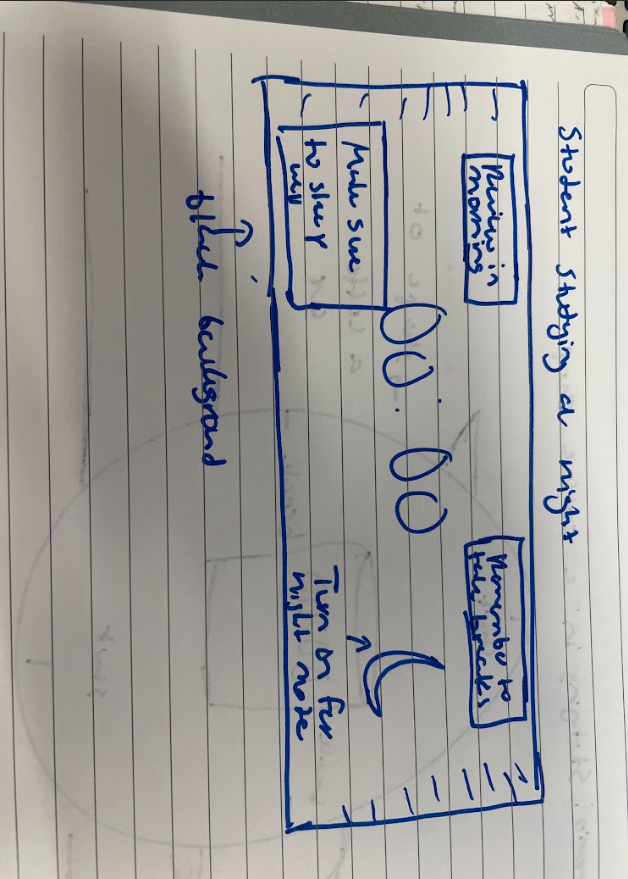 Student studying at night
Review in
morning
Remember to
take breaks
00:00
Make sure
to sleep
well
Turn on for
night mode
black background